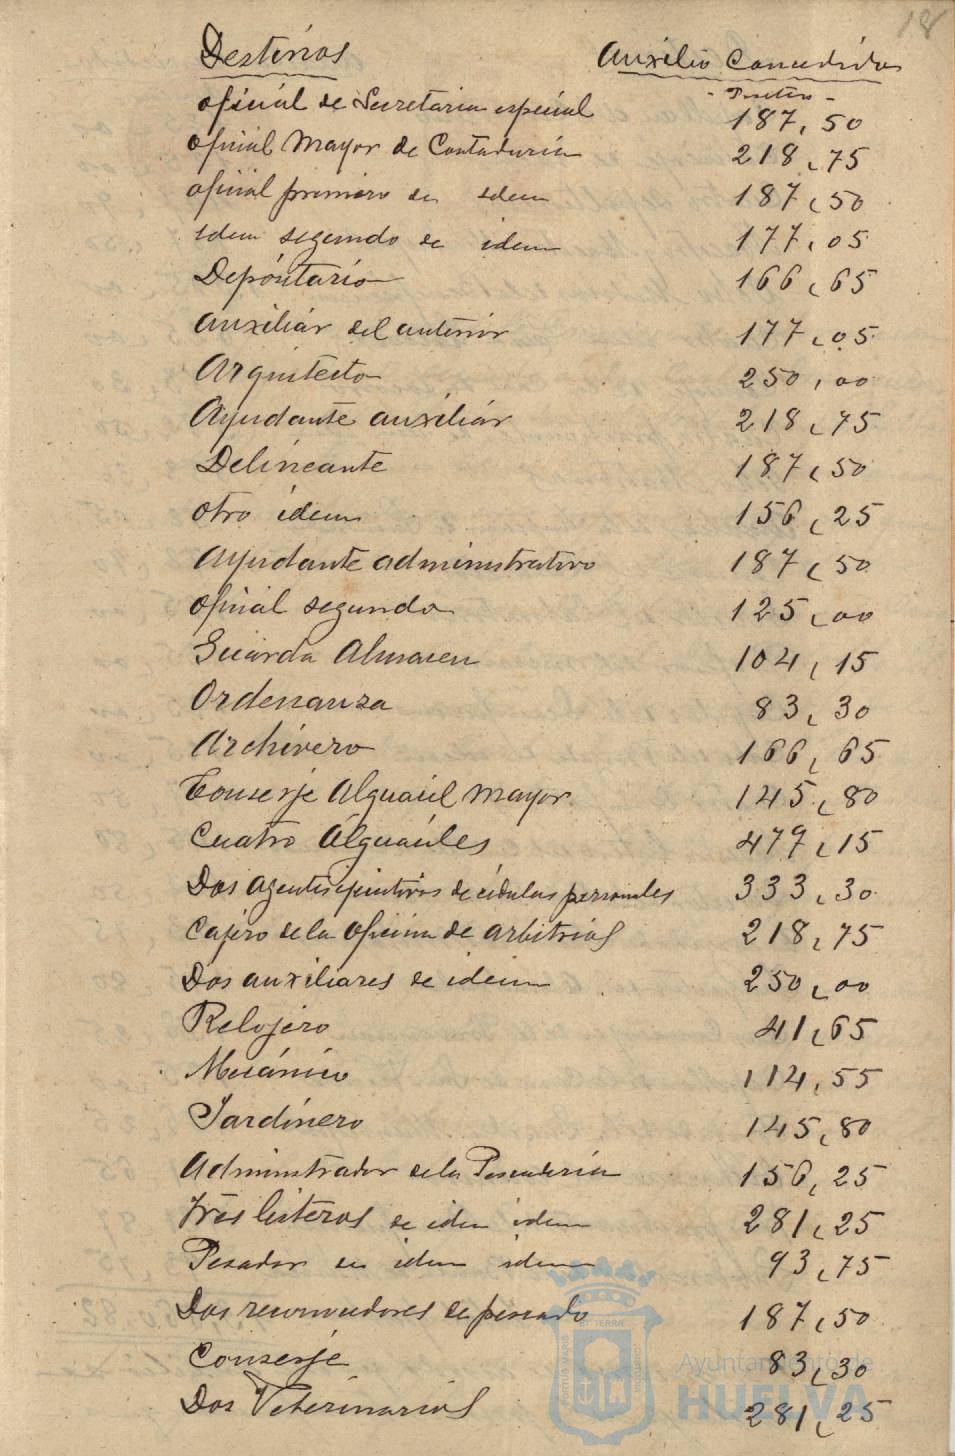 18
Destinos Auxilio Concedido
- Pesetas -
oficial de Secretaria especial 187,50
oficial Mayor de Contaduria 218,75
oficial primero de idem 187,50
idem segundo de idem 177,05
Depositario 166,65
Auxiliar del anterior 177,05
Arquitecto 250,00
Ayudante auxiliar 218,75
Delineante 187,50
otro idem 156,25
Ayudante administrativo 187,50
oficial segundo 125,00
Guarda Almacen 104,15
Ordenanza 83,30
Archivero 166,65
Conserje Alguacil mayor 145,80
Cuatro Alguaciles 479,15
Dos agentes ejecutivos de cédulas personales 333,30
Cajero de la oficina de arbitrios 218,75
Dos auxiliares de idem 250,00
Relojero 41,65
Mecánico 114,55
Jardinero 145,80
Administrador de la Pescaderia 156,25
Tres listeros de idem idem 281,25
Pesador de idem idem 93,75
Dos reconocedores de pescado 187,50
Conserje 83,30
Dos Veterinarios 281,25
Ayuntamiento de
HUELVA